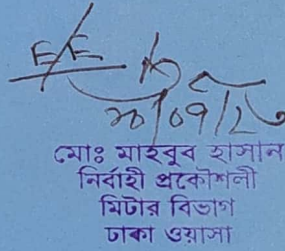 E/E
মোঃ মাহবুব হাসান
নির্বাহী প্রকৌশলী
মিটার বিভাগ
ঢাকা ওয়াসা